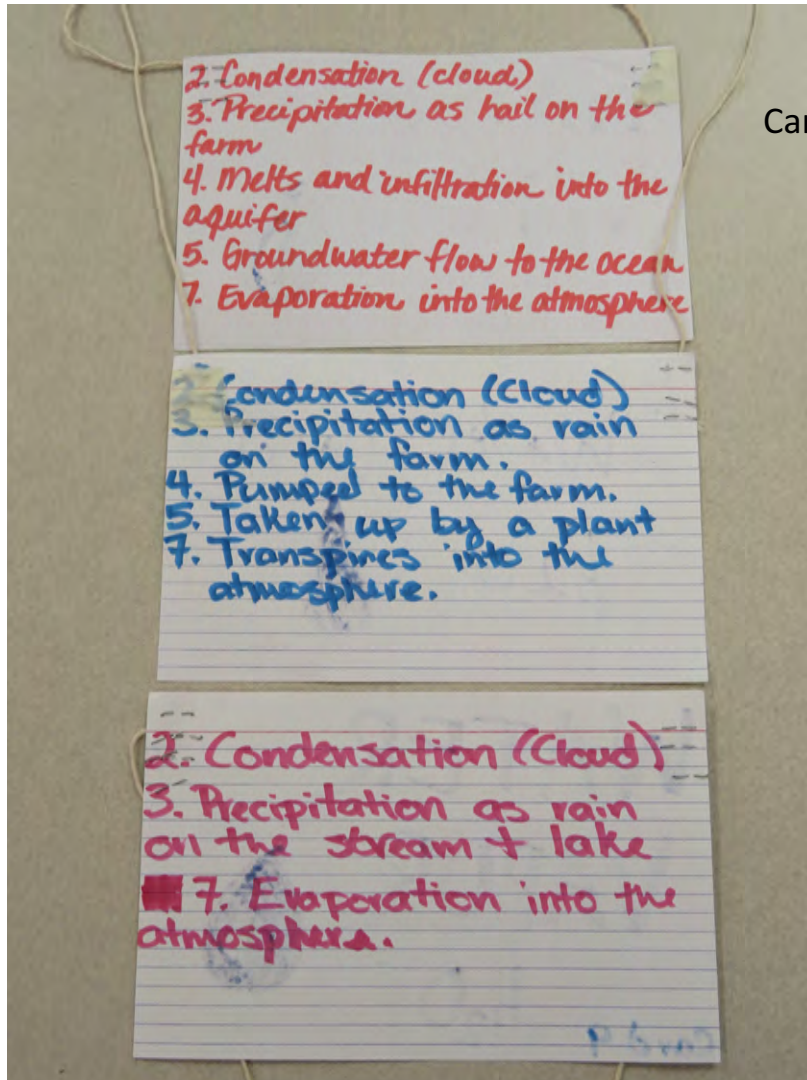 2. Condensation (cloud)
3. Precipitation as hail on the
farm
4. Melts and infiltration into the
aquifer
5. Groundwater flow to the ocean
7. Evaporation into the atmosphere
2. Condensation (Cloud)
3. Precipitation as rain
on the farm.
4. Pumped to the farm.
5. Taken up by a plant
7. Transpires into the
atmosphere.
2. Condensation (Cloud)
3. Precipitation as rain
on the stream + lake
7. Evaporation into the
atmosphere.